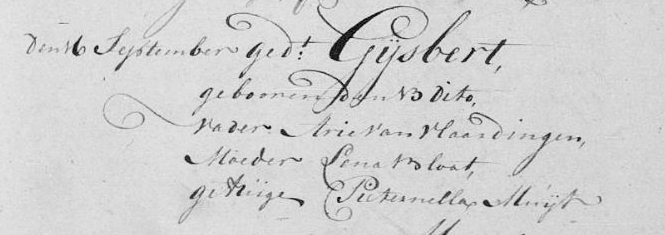 Den 16 September ged.t Gijsbert,
gebooren den 13 dito,
vader Arie van Vlaardingen,
Moeder Lena Bloat,
getuige Pieternella Muijt